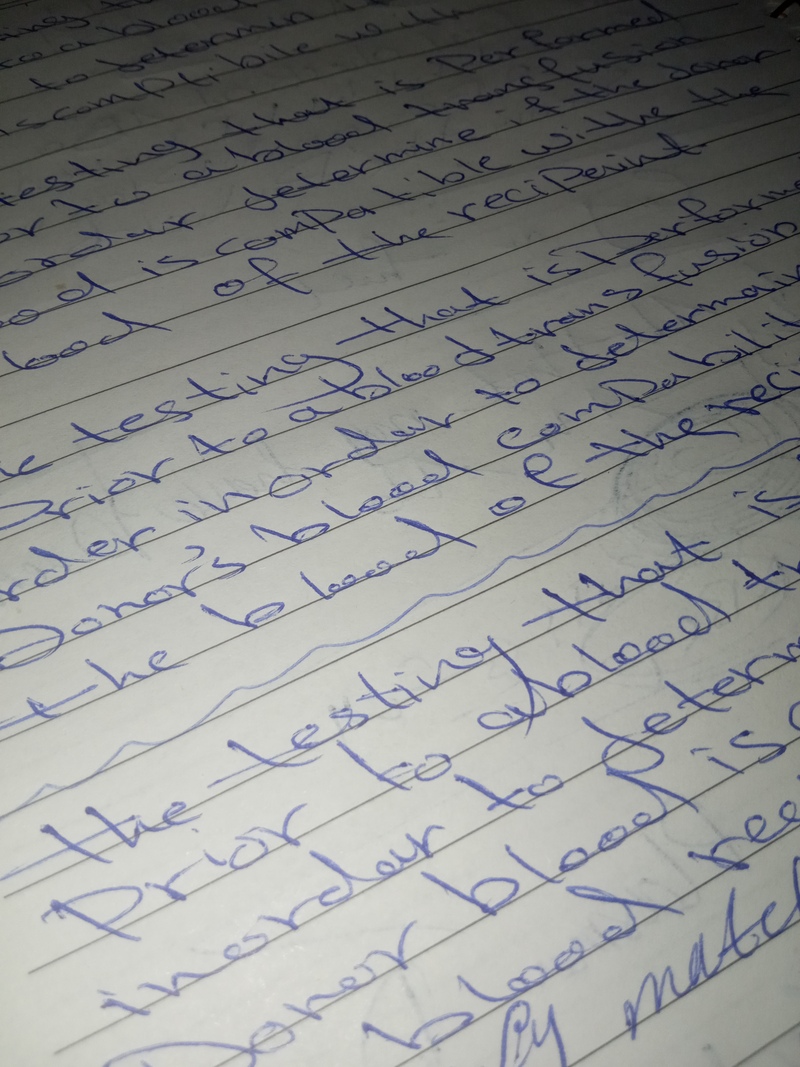 to a blood
to determin i
is comptibile with
testing that is Performed
or to a blood transfusion
ordar determine if the donor
ood is compatible withe the
blood of the recipeint
testing that is Performe
Prior to a blood transfusion
rder in ordar to determain
Donor's blood compabilit
the blood of the reci
the testing that is
Prior to a blood tr
inordar to determ
Donor blood is c
blood rec
By match